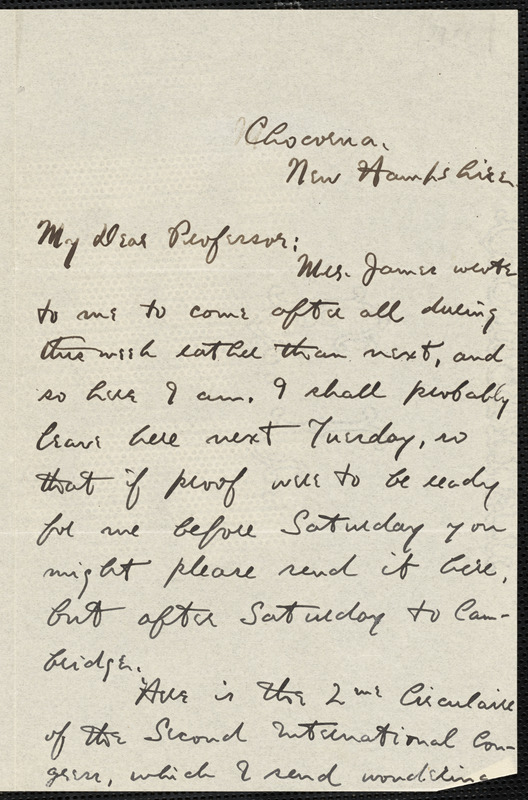 Chocorua,
New Hampshire.
My Dear Professor:
Mrs. James wrote
to me to come after all during
this week rather than next, and
so here I am. I shall probably
leave here next Tuesday, so
that if proof were to be ready
for me before Saturday you
might please send it here,
but after Saturday to Cam-
bridge.
Here is the 2me Circulaire
of the Second International Con-
gress, which I send wondering